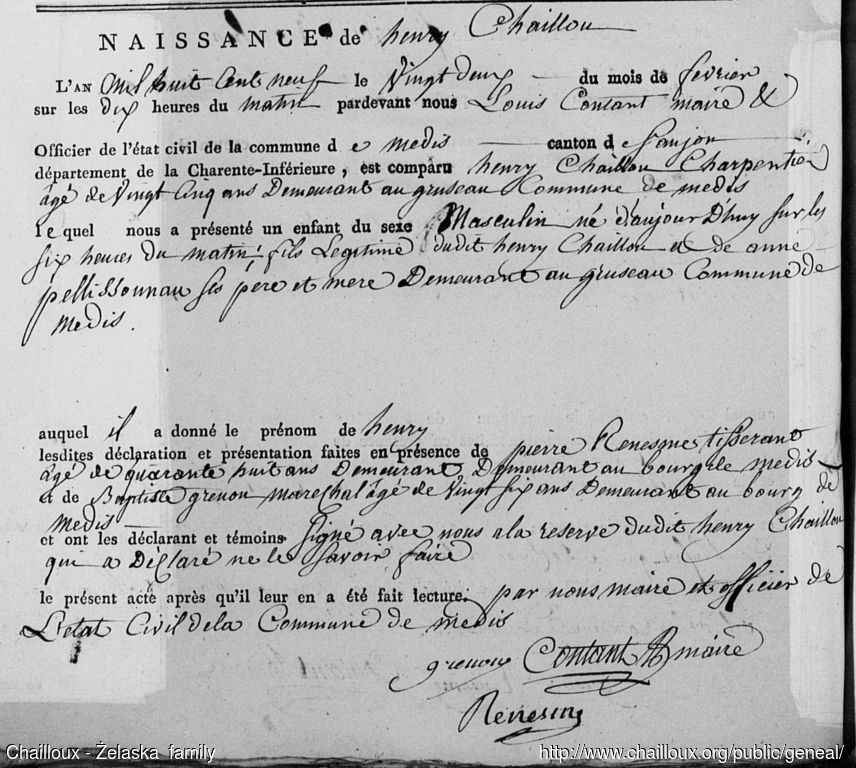 NAISSANCE de henry Chaillou
L'AN Mil huit Cent neuf le Vingt deux du mois de fevrier
sur les dix heures du matin pardevant nous Louis Contant maire &
Officier de l'état civil de la commune d e medis canton d e Saujon
département de la Charente-Inférieure, est comparu henry Chaillou Charpentier
âgé de Vingt Cinq ans Demeurant au gruseau Commune de medis
le quel nous a présenté un enfant du sexe Masculin né d'aujour D'huy sur les
six heures du matin; fils Legitime dudit henry Chaillou et de anne
pellissonnau ses père et mere Demeurant au gruseau Commune de
medis.
auquel il a donné le prénom de henry
lesdites déclaration et présentation faites en présence de pierre Renesme tisserant
âgé de quarante huit ans Demeurant Demeurant au bourg de medis
et de Baptiste grenon marechal âgé de Vingt six ans Demeurant au bourg de
Medis
et ont les déclarant et témoins Signé avec nous a la reserve dudit henry Chaillou
qui a Déclaré ne le savoir faire
le présent acte après qu'il leur en a été fait lecture. par nous maire et officier de
L'etat Civil de la Commune de medis
grenon Contant maire
Renesme
Chailloux - Želaska family http://www.chailloux.org/public/geneal/